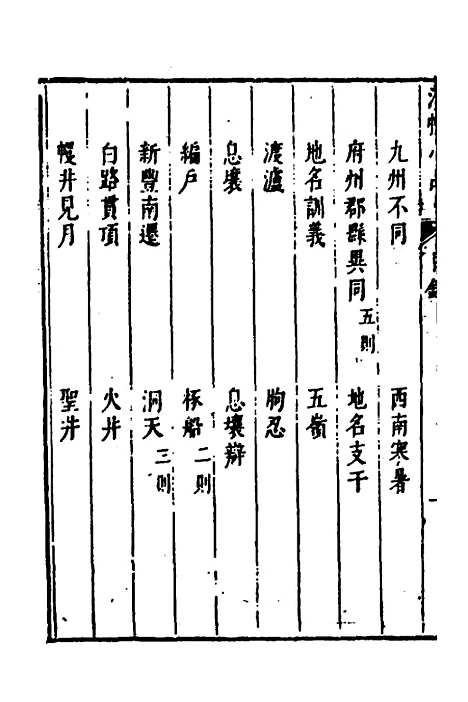 九州不同 西南寒暑
府州郡縣異同五則 地名支干
地名訓義 五嶺
渡瀘 朐忍
息壤 息壤辯
編戶 椓船二則
新豐南遷 洞天三則
白路貫頂 火井
幔井見月 聖井